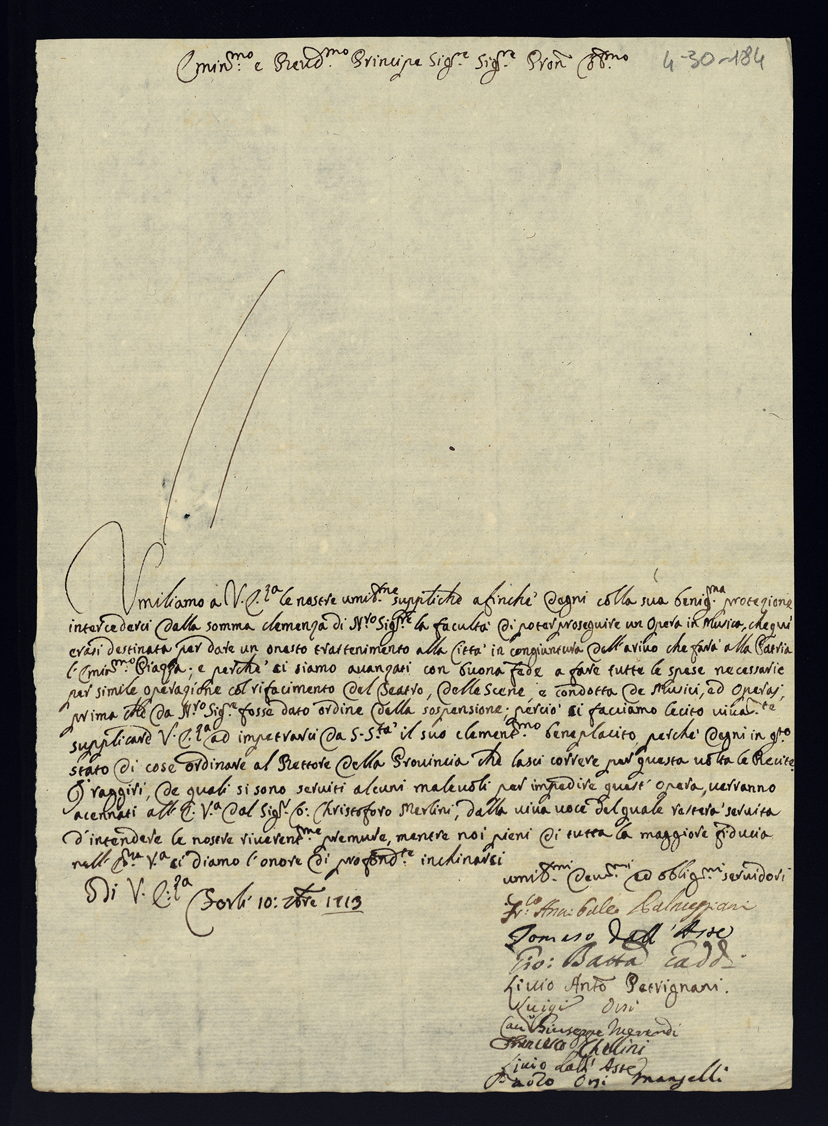 Emin.mo e Revd.mo Principe Sig.re Sig.re Pron Col.mo 4-30-184
Umiliamo a V. E.za le nostre umil.me suppliche afinche' degni colla sua benig.ma protezione
intercederci dalla somma clemenza di N'ro Sig.re la facultà di poter proseguire un Opera in Musica, che qui
erasi destinata per dare un onesto trattenimento alla Città in congiuntura dell'arivo che farà alla Patria
l'Emin.mo Piazza; e perche' si siamo avanzati con buona fede a fare tutte le spese necessarie
per simile operazione col rifacimento del Teatro, delle Scene, e condotta de Musici, ed Operaj,
prima che da N'ro Sig.re fosse dato ordine della sospensione; perciò si facciamo lecito
supplicare V. E.za ad impetrarci da S. S.tà il suo clement.mo beneplacito, perche' degni in q.to
stato di cose ordinare al Rettore della Provincia che lasci correre per questa volta le Recite.
I raggiri, de quali si sono serviti alcuni malevoli per impedire quest' Opera, verranno
acennati all' E. V.a dal Sig.r D. Christoforo Merlini, dalla viva voce del quale resterà servita
d'intendere le nostre riverent.me premure, mentre noi pieni di tutta la maggiore fiducia
nell' E. V.a si diamo l'onore di profond.te inchinarsi
Di V. E.za
umil.mi dev.mi ed obblig.mi servidori
Forlì 10: Xbre 1713
Tomaso dall'Aste
Gio: Batta
Livio Anto Petrignani.
Luigi Orsi
Cav. Giuseppe Merendi
Francesco Ghellini
Livio dall'Aste
Paolo Orsi Manzelli